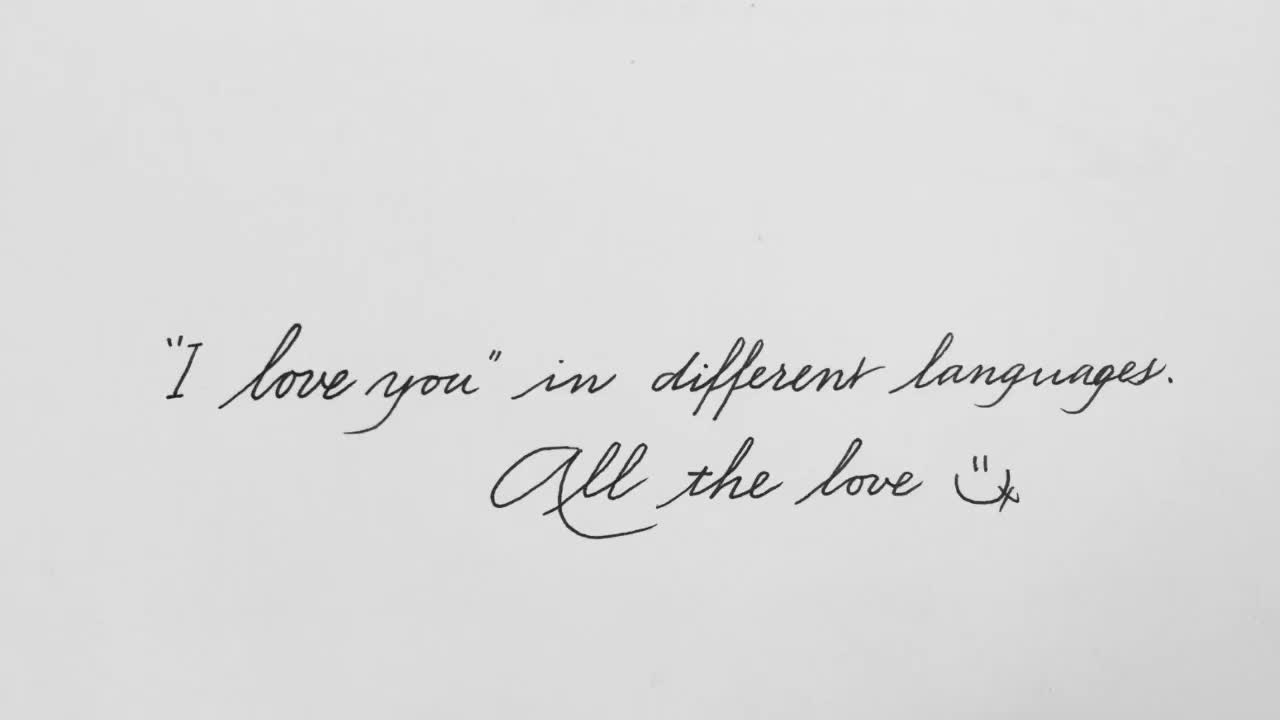 "I love you" in different languages.
All the love